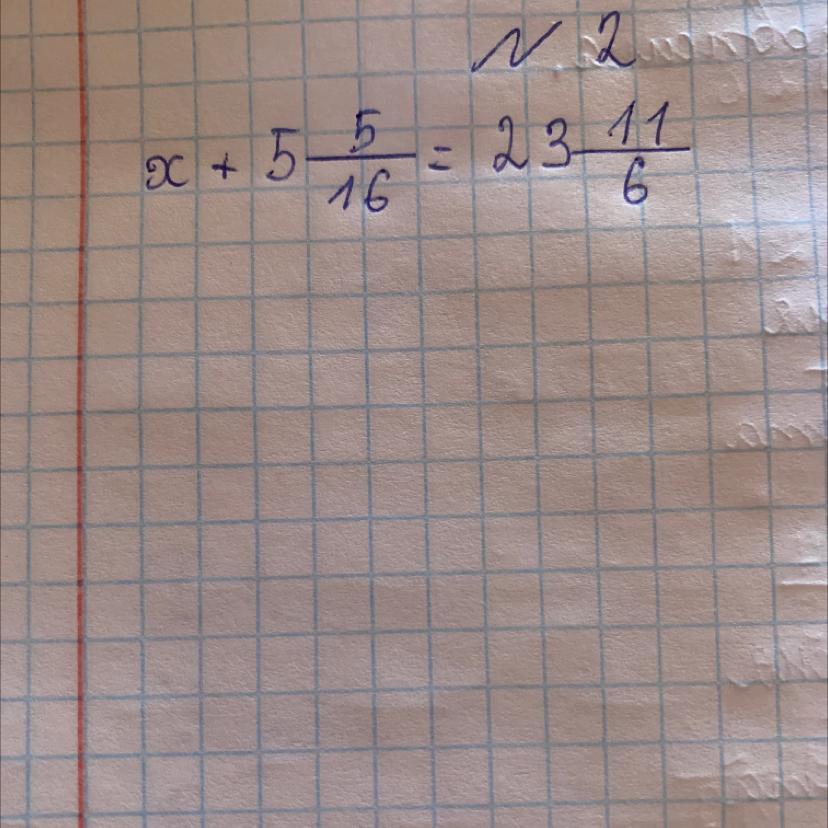 № 2
x + 5 5/16 = 23 11/6